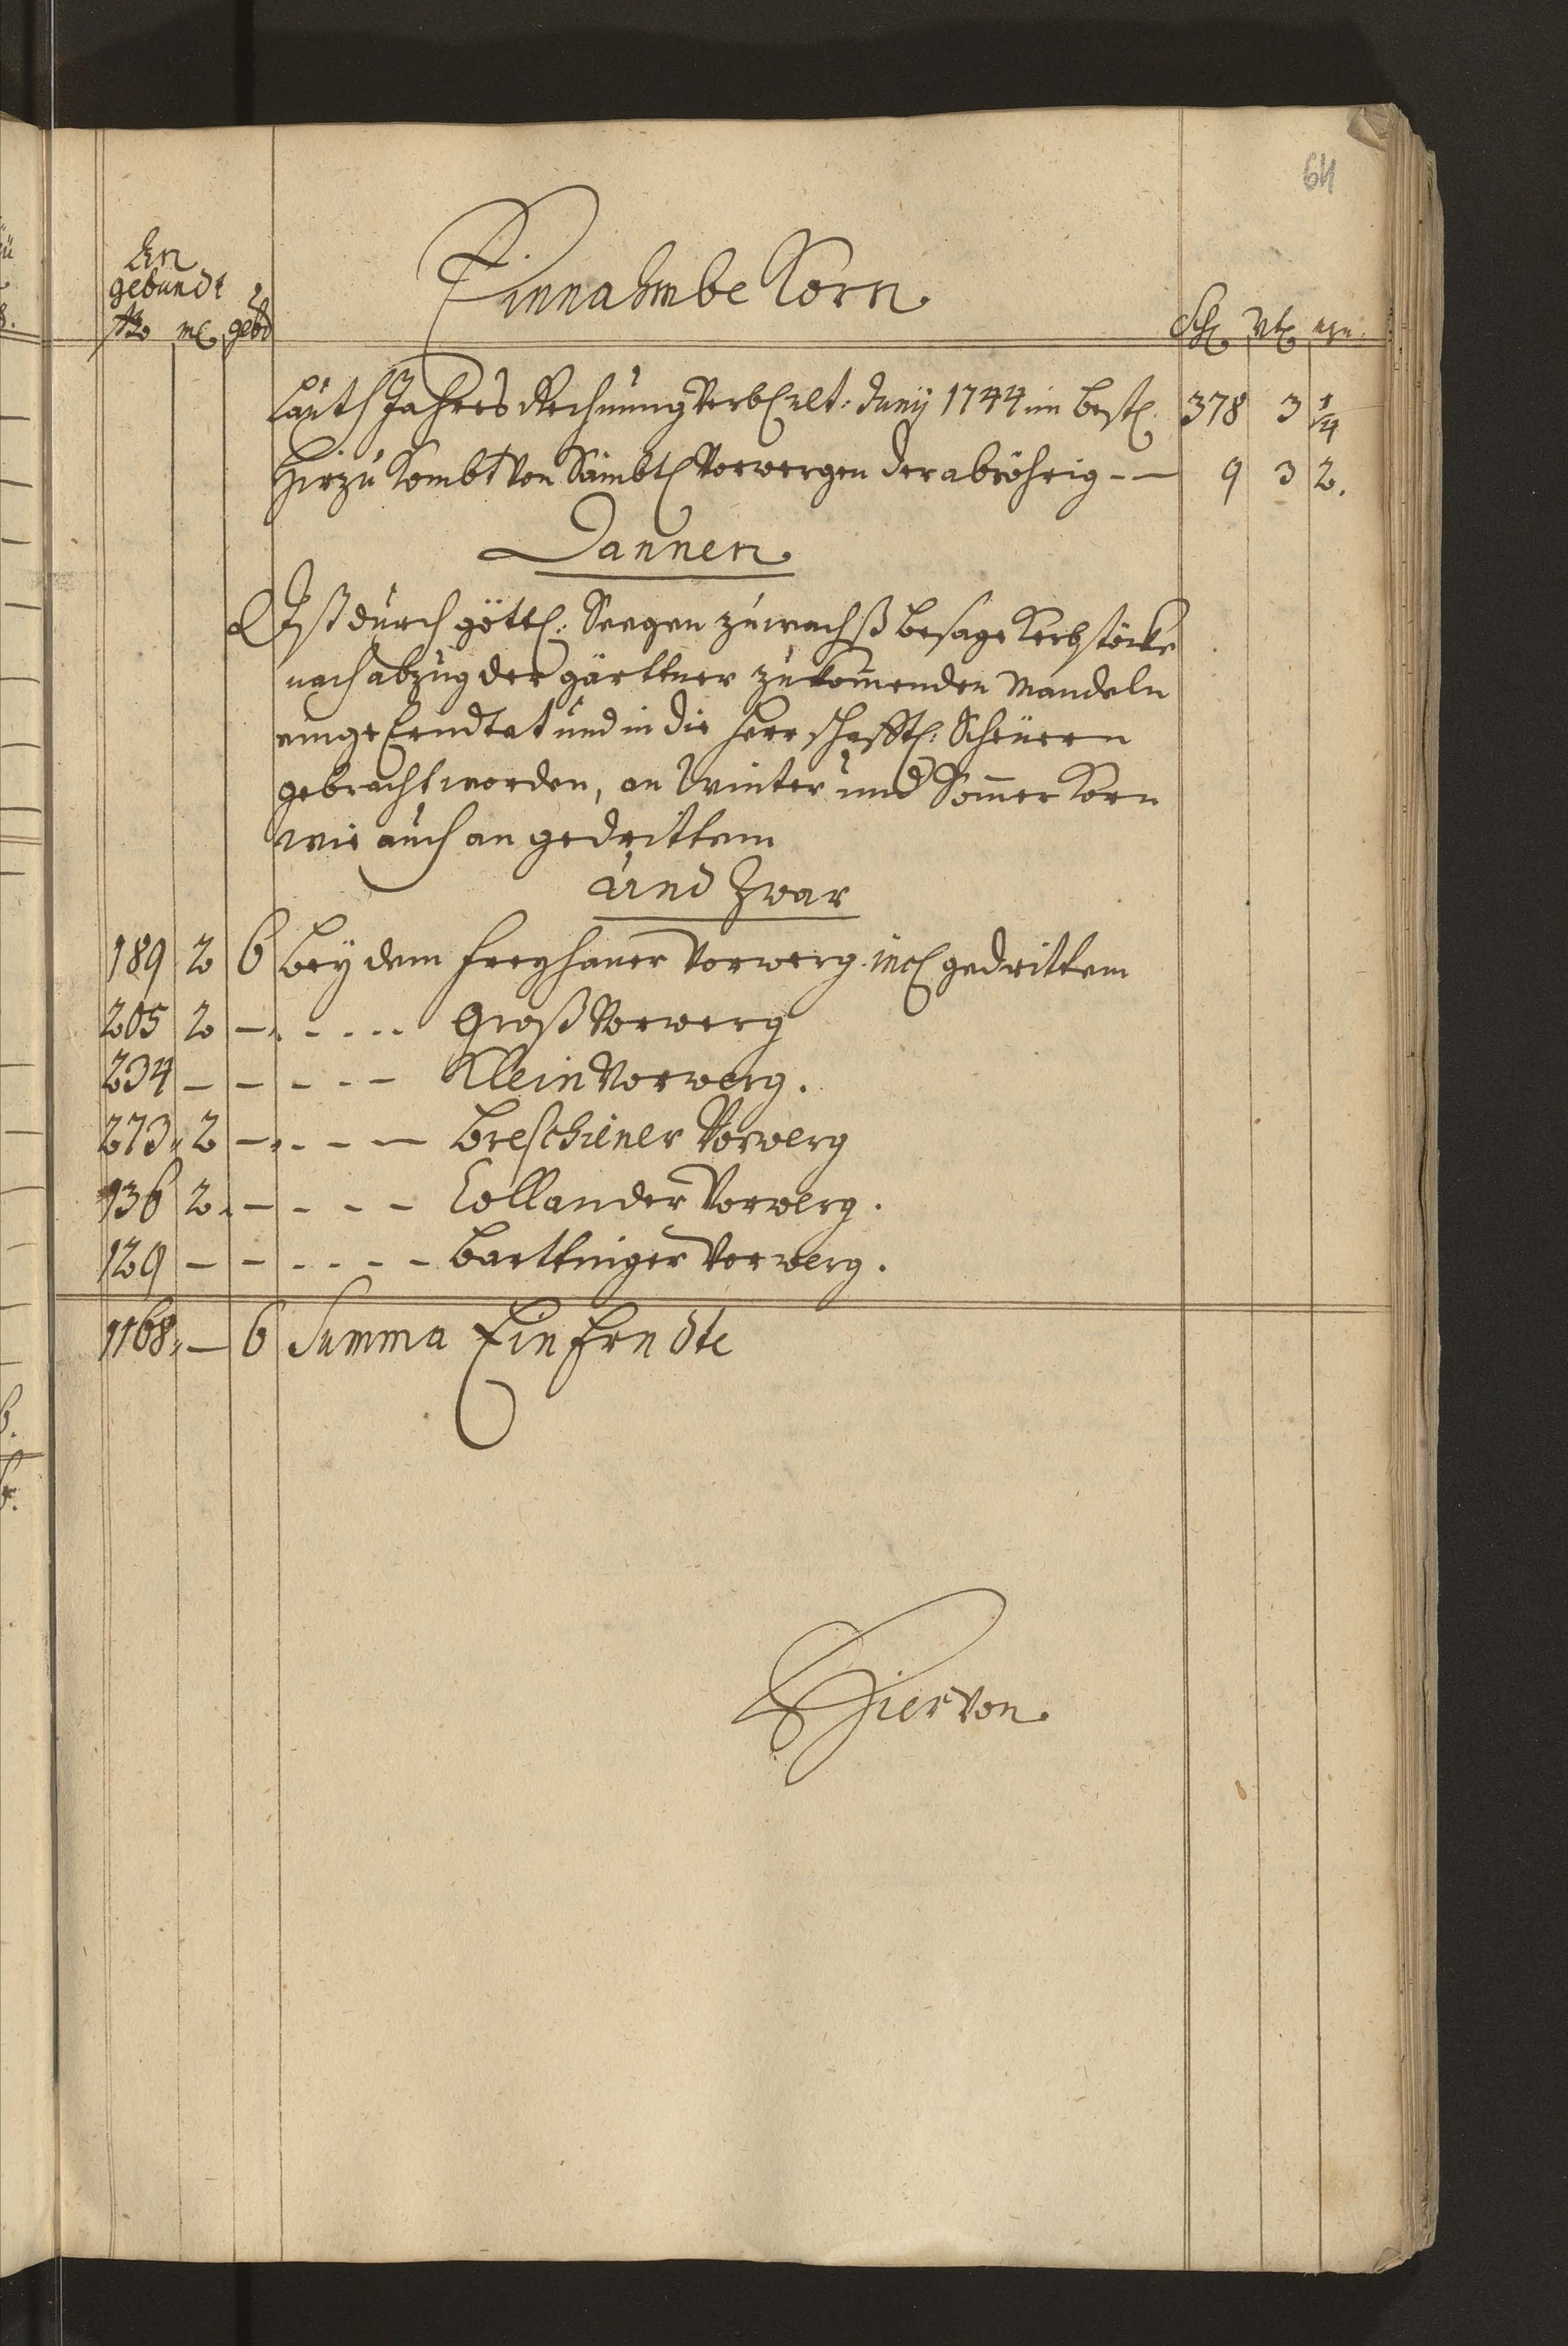 64
An
gebundt
ßo ml gebd
Einnahmbe Korn
Schl Vtl mzn.
Lauth Jahres Rechnung verbl ult: Juny 1744 im best 378 3 1/4
Hirzu kombt von Sämbtl Vorwergen der abröhrig -- 9 3 2.
Dannen
Ist durch göttl: Seegen zuwachß besage Kerbstöcke
nach abzug der gärttner zukommenden Mandeln
eingeerndtet und in die herrschafftl: Scheüern
gebracht worden, an Winter und Sommer Korn
wie auch an gedrittem
und zwar
189 2 6 bey dem freyhaner Vorwerg incl gedrittem
205 2 - - - - - Groß Vorwerg
234 - - - - - Klein Vorwerg.
273 2 - - - - Breschiner Vorwerg
136 2 - - - - Collander Vorwerg.
129 - - - - - - Barttniger Vorwerg.
1168 - 6 Summa Ein Erndte
Hiervon